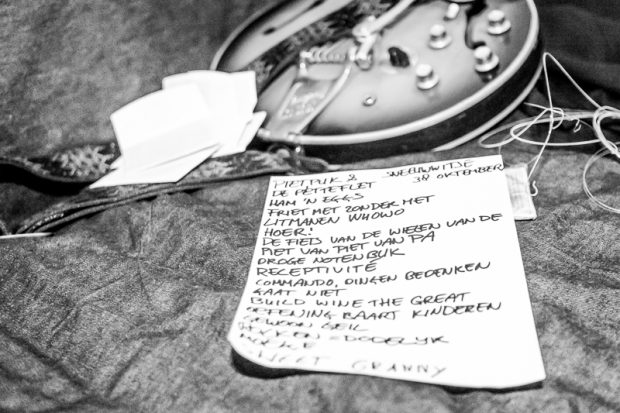 PIETPIJK 2 SNEEUWWITJE
DE PETTEFLET 3 OKTOBER
HAM 'N EGGS
FRIET MET ZONDER MET
LITMANEN WHOWO
HOER!
DE FIETS VAN DE WIELEN VAN DE
PIET VAN PIET VAN PA
DROGE NOTENBIJK
RECEPTIVITÉ
COMMANDO, DINGEN BEDENKEN
GAAT NIET
BUILD WINE THE GREAT
OEFENING BAART KINDEREN
GEWOON GEIL
= DODELIJK
SWEET GRANNY